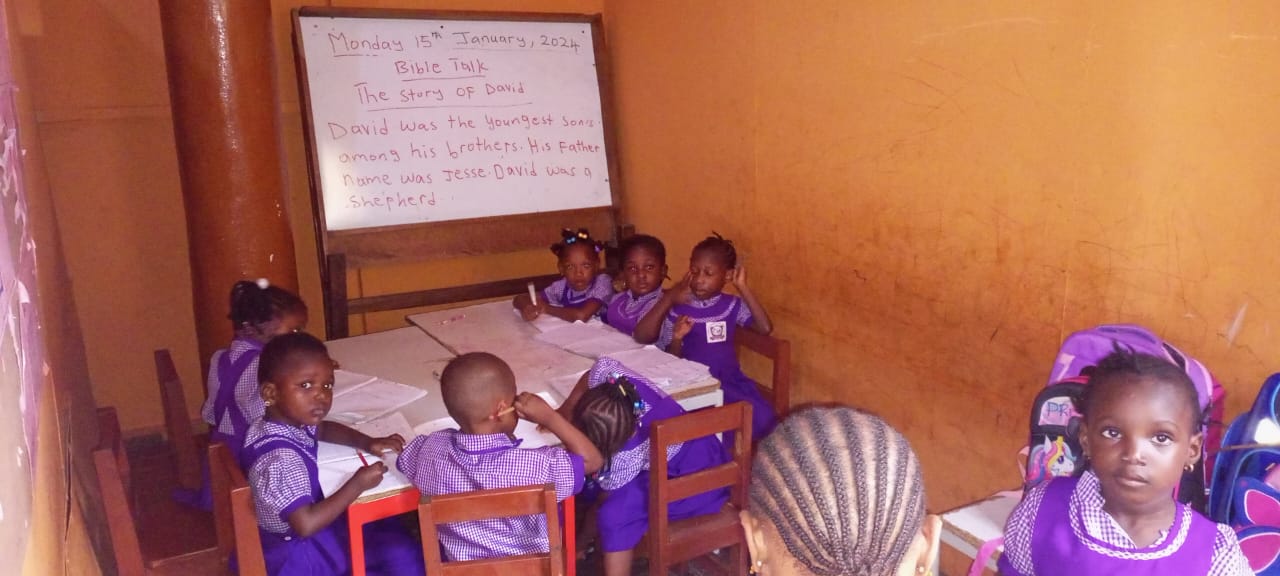 Monday 15th January, 2024
Bible Talk
The story of David
David was the youngest sons.
among his brothers. His Father
name was Jesse. David was a
shepherd.